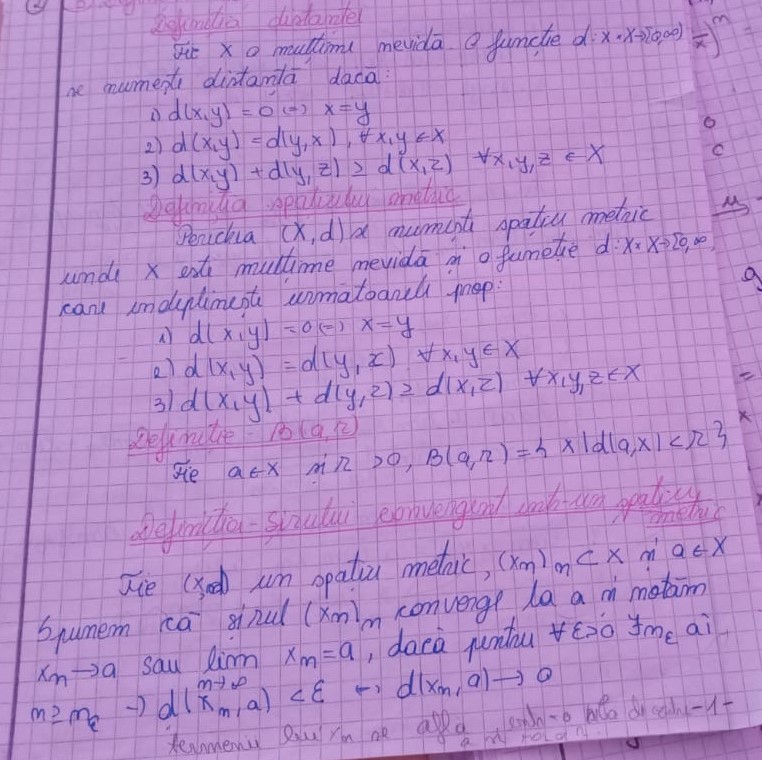 Definiția distanței
Fie X o mulțime nevidă. O funcție d: X × X → [0,∞)
se numește distanță dacă:
1) d(x,y) = 0 (=) x = y
2) d(x,y) = d(y,x), ∀ x,y ∈ X
3) d(x,y) + d(y,z) ≥ d(x,z) ∀ x,y,z ∈ X
Definiția spațiului metric
Perechia (X,d) se numește spațiu metric
unde X este mulțime nevidă și o funcție d: X × X → [0,∞
care îndeplinește următoarele prop:
1) d(x,y) = 0 (=) x = y
2) d(x,y) = d(y,x) ∀ x,y ∈ X
3) d(x,y) + d(y,z) ≥ d(x,z) ∀ x,y,z ∈ X
Definiție - B(a,r)
Fie a ∈ X și r > 0, B(a,r) = { x | d(a,x) < r }
Definiția - șirului convergent într-un spațiu
metric
Fie (X,d) un spațiu metric, (xn)n ⊂ X și a ∈ X
Spunem că șirul (xn)n converge la a și notăm
xn → a sau lim xn = a, dacă pentru ∀ ε>0 ∃ nε aî
n→∞
n ≥ nε → d(xn,a) < ε ↔ d(xn,a) → 0
termenii lui xn se află